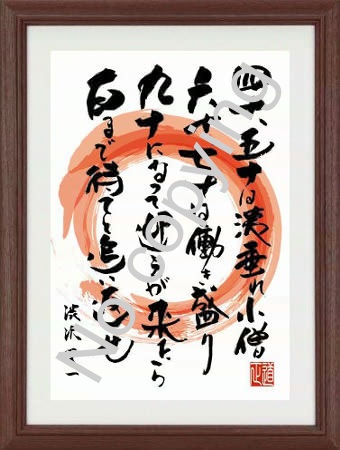 四十五十は洟垂れ小僧
六十七十は働き盛り
九十になって迎えが来たら
百まで待てと追い返せ
渋沢栄一
No copying